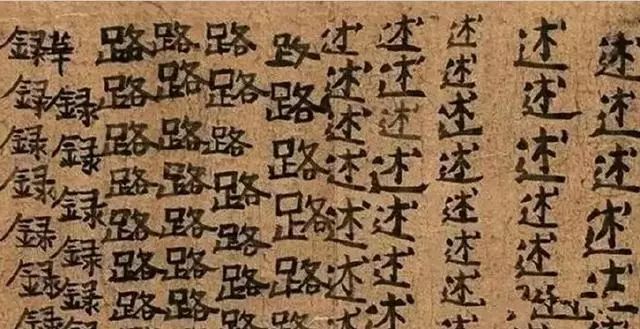 述述述述述
述述述述述述
述述述述述述述
述述述述述述述
述述述述述述述
路路路路路
路路路路路路路
路路路路路路路
路路路路路路路
録録録録録
録録録録録録録